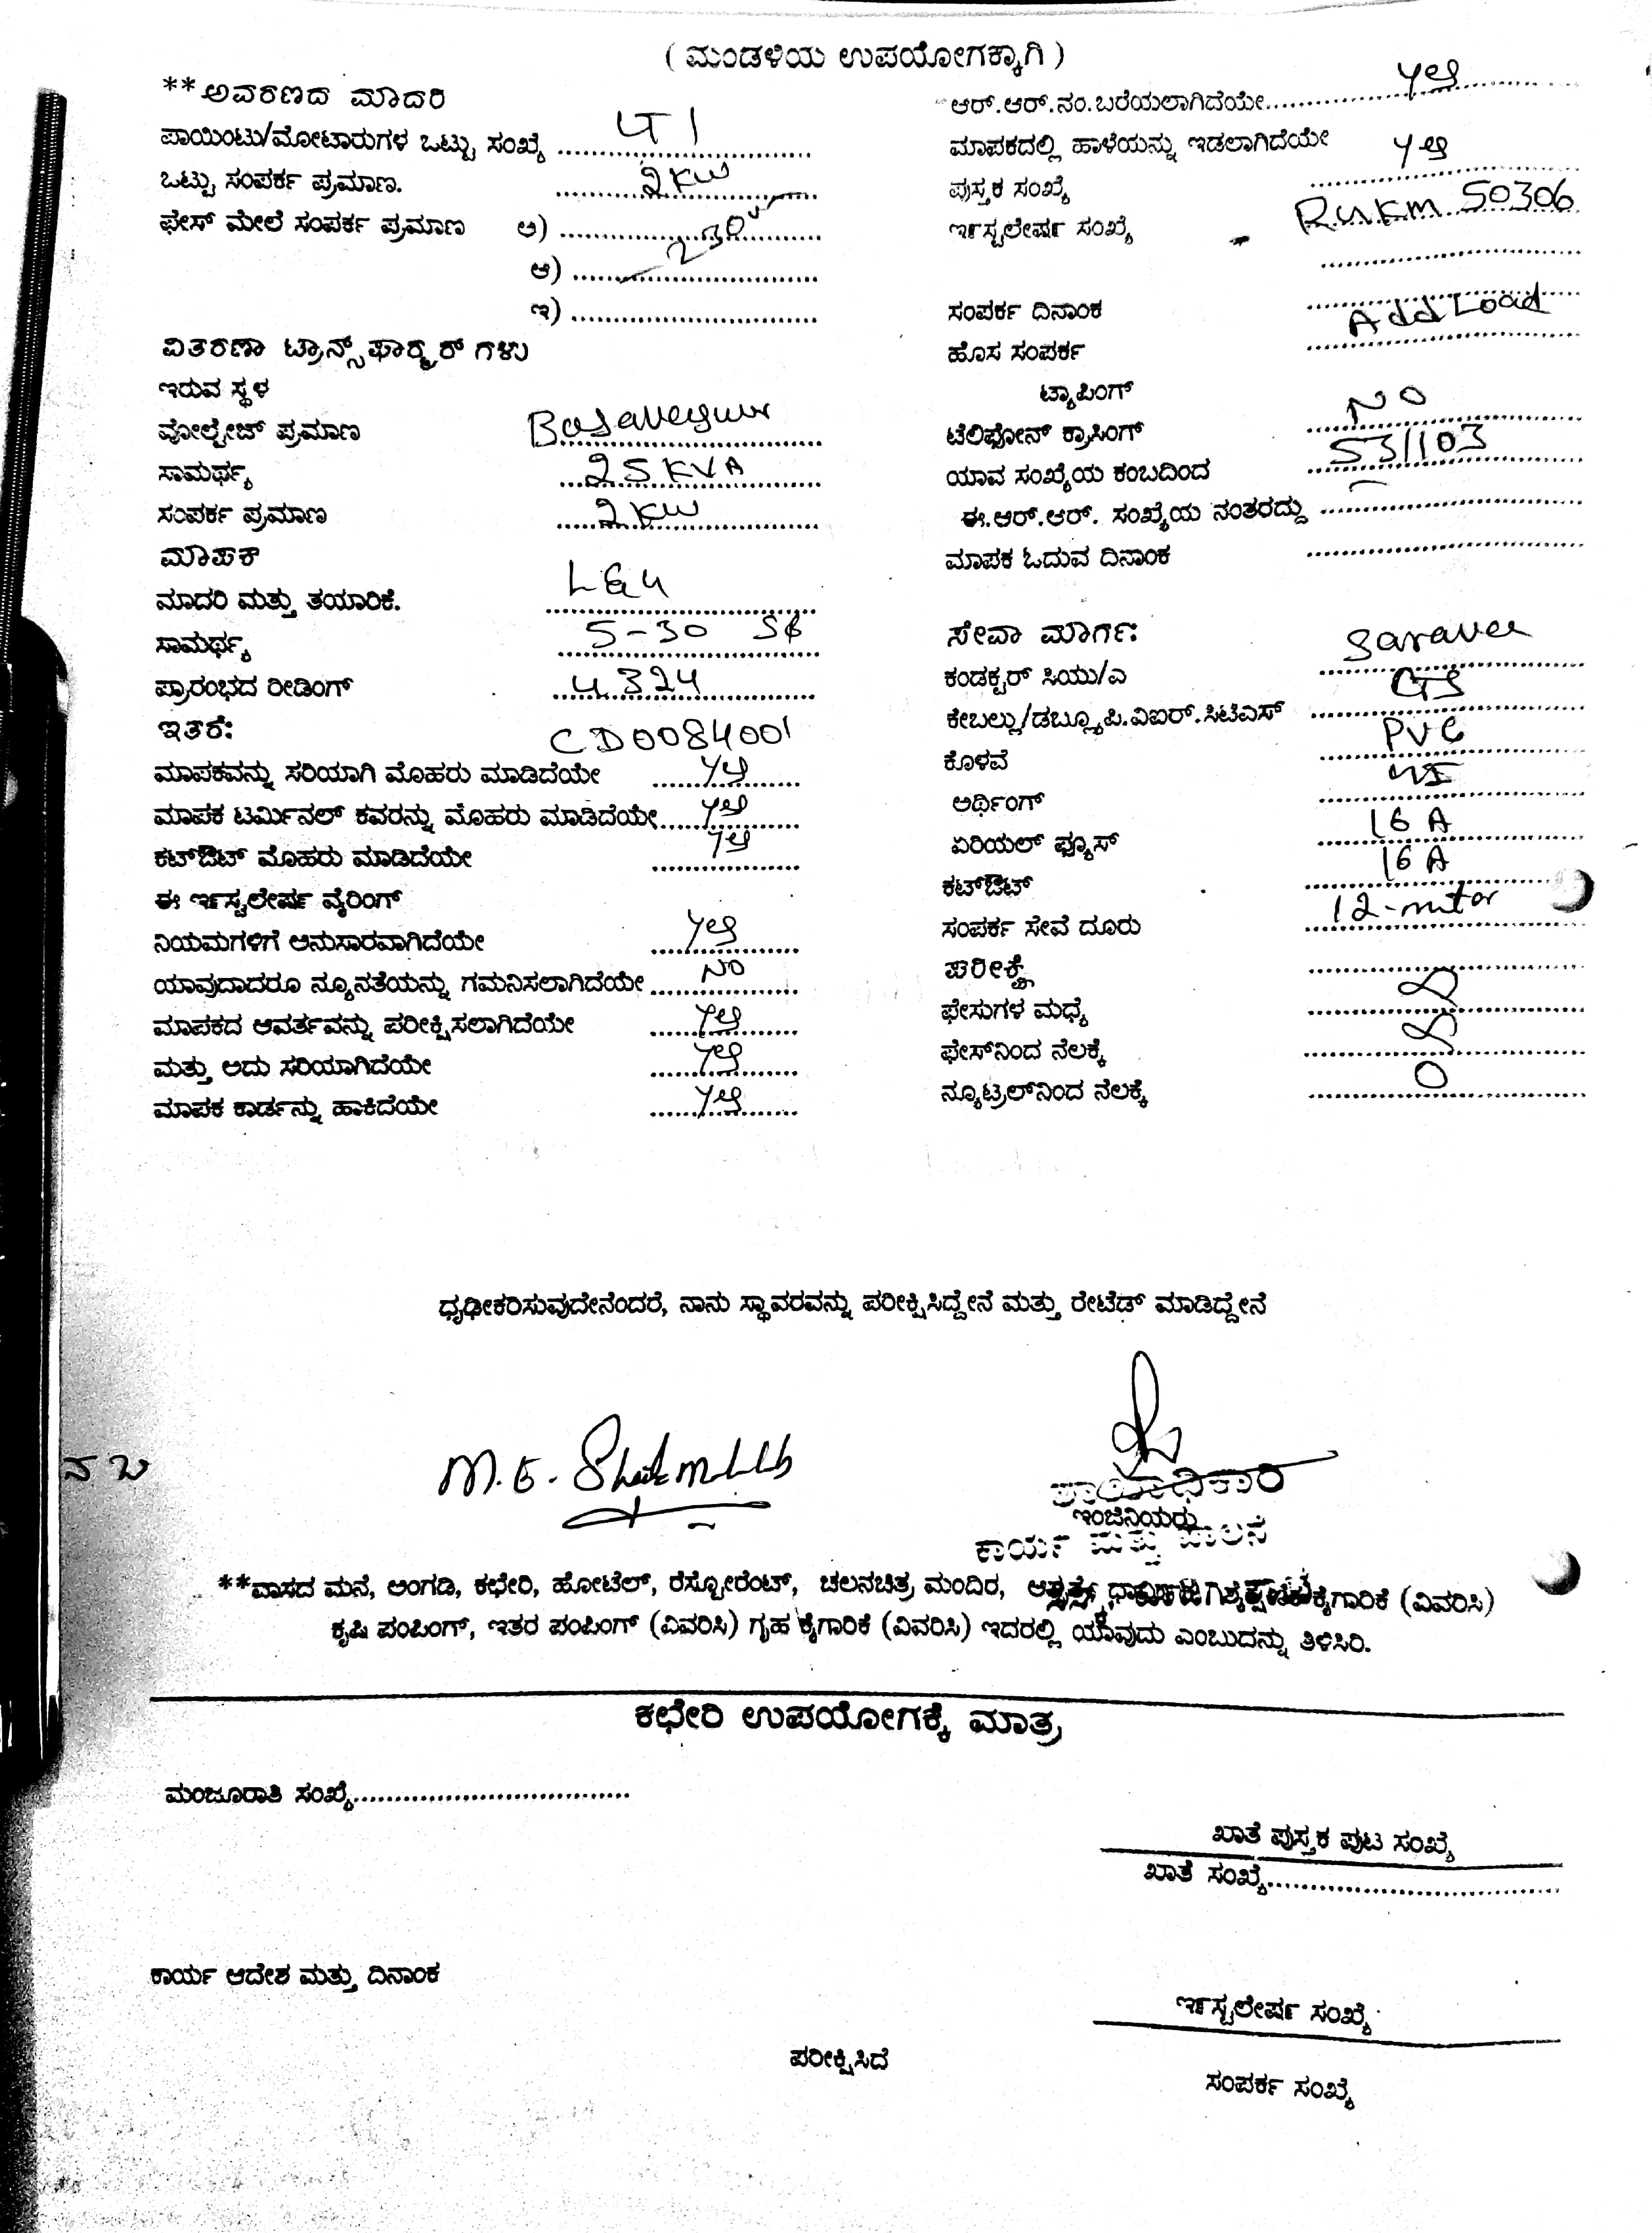 ( ಮಂಡಳಿಯ ಉಪಯೋಗಕ್ಕಾಗಿ )
**ಅವರಣದ ಮಾದರಿ
ಪಾಯಿಂಟು/ಮೋಟಾರುಗಳ ಒಟ್ಟು ಸಂಖ್ಯೆ ..............................
ಒಟ್ಟು ಸಂಪರ್ಕ ಪ್ರಮಾಣ. 2KW
ಫೇಸ್ ಮೇಲೆ ಸಂಪರ್ಕ ಪ್ರಮಾಣ ಅ) 230V
ಆ) ..............................
ಇ) ..............................
ವಿತರಣಾ ಟ್ರಾನ್ಸ್‌ಫಾರ್ಮರ್ ಗಳು
ಇರುವ ಸ್ಥಳ
ವೋಲ್ಟೇಜ್ ಪ್ರಮಾಣ
ಸಾಮರ್ಥ್ಯ 25 KVA
ಸಂಪರ್ಕ ಪ್ರಮಾಣ 2KW
ಮಾಪಕ
ಮಾದರಿ ಮತ್ತು ತಯಾರಿಕೆ. L&G
ಸಾಮರ್ಥ್ಯ 5-30
ಪ್ರಾರಂಭದ ರೀಡಿಂಗ್ 4324
ಇತರೆ: CD0084001
ಮಾಪಕವನ್ನು ಸರಿಯಾಗಿ ಮೊಹರು ಮಾಡಿದೆಯೇ yes
ಮಾಪಕ ಟರ್ಮಿನಲ್ ಕವರನ್ನು ಮೊಹರು ಮಾಡಿದೆಯೇ yes
ಕಟ್‌ಔಟ್ ಮೊಹರು ಮಾಡಿದೆಯೇ yes
ಈ ಇನ್‌ಸ್ಟಲೇಷನ್ ವೈರಿಂಗ್
ನಿಯಮಗಳಿಗೆ ಅನುಸಾರವಾಗಿದೆಯೇ yes
ಯಾವುದಾದರೂ ನ್ಯೂನತೆಯನ್ನು ಗಮನಿಸಲಾಗಿದೆಯೇ NO
ಮಾಪಕದ ಆವರ್ತವನ್ನು ಪರೀಕ್ಷಿಸಲಾಗಿದೆಯೇ yes
ಮತ್ತು ಅದು ಸರಿಯಾಗಿದೆಯೇ yes
ಮಾಪಕ ಕಾರ್ಡನ್ನು ಹಾಕಿದೆಯೇ yes
ಆರ್.ಆರ್.ನಂ.ಬರೆಯಲಾಗಿದೆಯೇ yes
ಮಾಪಕದಲ್ಲಿ ಹಾಳೆಯನ್ನು ಇಡಲಾಗಿದೆಯೇ yes
ಪುಸ್ತಕ ಸಂಖ್ಯೆ
ಇನ್‌ಸ್ಟಲೇಷನ್ ಸಂಖ್ಯೆ 50306
ಸಂಪರ್ಕ ದಿನಾಂಕ
ಹೊಸ ಸಂಪರ್ಕ Add Load
ಟ್ಯಾಪಿಂಗ್
ಟೆಲಿಫೋನ್ ಕ್ರಾಸಿಂಗ್ NO
ಯಾವ ಸಂಖ್ಯೆಯ ಕಂಬದಿಂದ
ಈ.ಆರ್.ಆರ್. ಸಂಖ್ಯೆಯ ನಂತರದ್ದು ..............................
ಮಾಪಕ ಓದುವ ದಿನಾಂಕ ..............................
ಸೇವಾ ಮಾರ್ಗ:
ಕಂಡಕ್ಟರ್ ಸಿಯು/ಎ
ಕೇಬಲ್ಲು/ಡಬ್ಲ್ಯೂ.ಪಿ.ವಿಐರ್.ಸಿಟಿಎಸ್
ಕೊಳವೆ PVC
ಅರ್ಥಿಂಗ್
ಏರಿಯಲ್ ಫ್ಯೂಸ್ 16 A
ಕಟ್‌ಔಟ್ 16 A
ಸಂಪರ್ಕ ಸೇವೆ ದೂರು 12-
ಪರೀಕ್ಷೆ
ಫೇಸುಗಳ ಮಧ್ಯೆ
ಫೇಸ್‌ನಿಂದ ನೆಲಕ್ಕೆ
ನ್ಯೂಟ್ರಲ್‌ನಿಂದ ನೆಲಕ್ಕೆ 0
ಧೃಢೀಕರಿಸುವುದೇನೆಂದರೆ, ನಾನು ಸ್ಥಾವರವನ್ನು ಪರೀಕ್ಷಿಸಿದ್ದೇನೆ ಮತ್ತು ರೇಟೆಡ್ ಮಾಡಿದ್ದೇನೆ
ಇಂಜಿನಿಯರು
ಕಾರ್ಯ ಮತ್ತು ಪಾಲನೆ
**ವಾಸದ ಮನೆ, ಅಂಗಡಿ, ಕಛೇರಿ, ಹೋಟೆಲ್, ರೆಸ್ಟೋರೆಂಟ್, ಚಲನಚಿತ್ರ ಮಂದಿರ, ಕೈಗಾರಿಕೆ (ವಿವರಿಸಿ)
ಕೃಷಿ ಪಂಪಿಂಗ್, ಇತರ ಪಂಪಿಂಗ್ (ವಿವರಿಸಿ) ಗೃಹ ಕೈಗಾರಿಕೆ (ವಿವರಿಸಿ) ಇದರಲ್ಲಿ ಯಾವುದು ಎಂಬುದನ್ನು ತಿಳಿಸಿರಿ.
ಕಛೇರಿ ಉಪಯೋಗಕ್ಕೆ ಮಾತ್ರ
ಮಂಜೂರಾತಿ ಸಂಖ್ಯೆ..............................
ಖಾತೆ ಪುಸ್ತಕ ಪುಟ ಸಂಖ್ಯೆ
ಖಾತೆ ಸಂಖ್ಯೆ..............................
ಕಾರ್ಯ ಆದೇಶ ಮತ್ತು ದಿನಾಂಕ
ಇನ್‌ಸ್ಟಲೇಷನ್ ಸಂಖ್ಯೆ
ಪರೀಕ್ಷಿಸಿದೆ
ಸಂಪರ್ಕ ಸಂಖ್ಯೆ